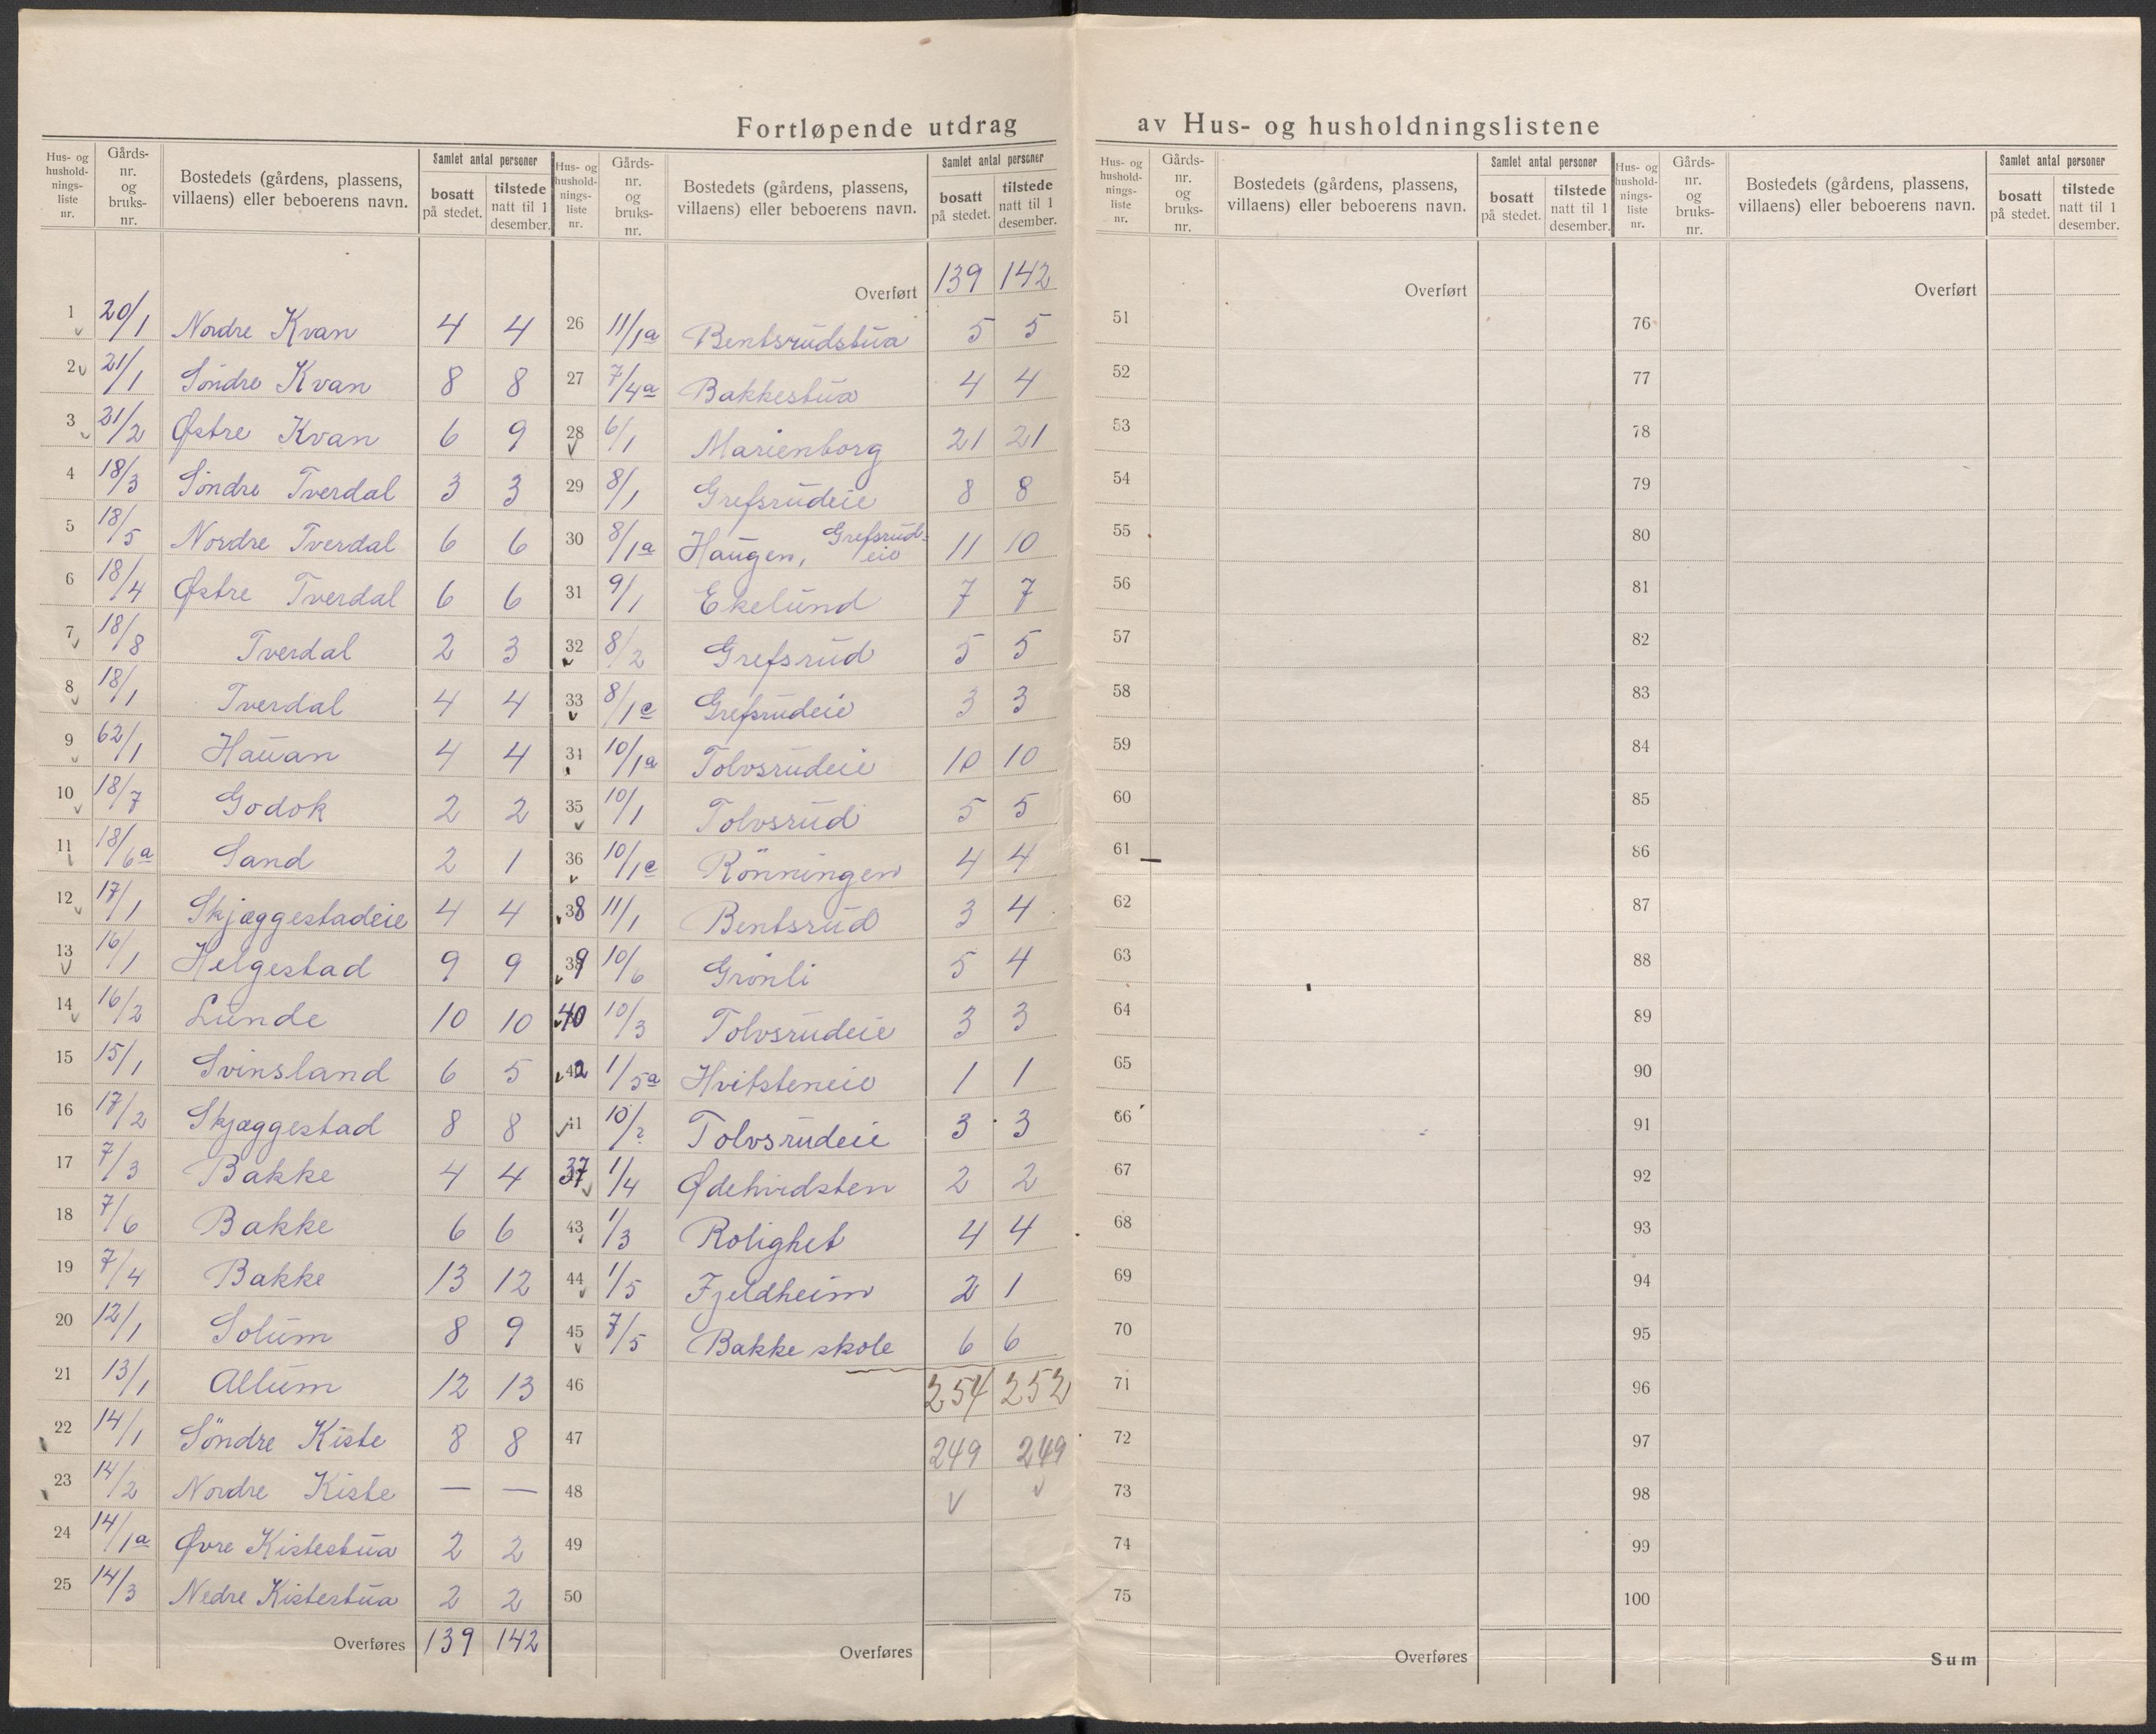 Fortløpende utdrag av Hus- og husholdningslistene
Hus- og husholdningsliste nr. | Gårds-nr. og bruks-nr. | Bostedets (gårdens, plassens, villaens) eller beboerens navn. | Samlet antal personer bosatt på stedet. | tilstede natt til 1 desember.
1 20/1 Nordre Kvan 4 4
2 21/1 Söndre Kvan 8 8
3 21/2 Østre Kvan 6 9
4 18/3 Söndre Tverdal 3 3
5 18/5 Nordre Tverdal 6 6
6 18/4 Østre Tverdal 6 6
7 18/8 Tverdal 2 3
8 18/1 Tverdal 4 4
9 62/1 Hauan 4 4
10 18/7 Godok 2 2
11 18/6a Sand 2 1
12 17/1 Skjæggestadeie 4 4
13 16/1 Helgestad 9 9
14 16/2 Lunde 10 10
15 15/1 Svinsland 6 5
16 17/2 Skjæggestad 8 8
17 7/3 Bakke 4 4
18 7/6 Bakke 6 6
19 7/4 Bakke 13 12
20 12/1 Solum 8 9
21 13/1 Allum 12 13
22 14/1 Söndre Kiste 8 8
23 14/2 Nordre Kiste — —
24 14/1a Øvre Kistestua 2 2
25 14/3 Nedre Kistestua 2 2
Overføres 139 142
Hus- og husholdningsliste nr. | Gårds-nr. og bruks-nr. | Bostedets (gårdens, plassens, villaens) eller beboerens navn. | Samlet antal personer bosatt på stedet. | tilstede natt til 1 desember.
Overført 139 142
26 11/1a Bentsrudstua 5 5
27 7/4a Bakkestua 4 4
28 6/1 Marienborg 21 21
29 8/1 Grefsrudeie 8 8
30 8/1a Haugen, Grefsrud-eie 11 10
31 9/1 Ekelund 7 7
32 8/2 Grefsrud 5 5
33 8/1c Grefsrudeie 3 3
34 10/1a Tolvsrudeie 10 10
35 10/1 Tolvsrud 5 5
36 10/1c Rönningen 4 4
38 11/1 Bentsrud 3 4
39 10/6 Grönli 5 4
40 10/3 Tolvsrudeie 3 3
42 1/5a Hvitsteneie 1 1
41 10/2 Tolvsrudeie 3 3
37 1/4 Ødehvidsten 2 2
43 1/3 Rolighet 4 4
44 1/5 Fjeldheim 2 1
45 7/5 Bakke skole 6 6
46 254 252
47 249 249
48
49
50
Overføres
Hus- og husholdningsliste nr. | Gårds-nr. og bruks-nr. | Bostedets (gårdens, plassens, villaens) eller beboerens navn. | Samlet antal personer bosatt på stedet. | tilstede natt til 1 desember.
Overført
51
52
53
54
55
56
57
58
59
60
61
62
63
64
65
66
67
68
69
70
71
72
73
74
75
Overføres
Hus- og husholdningsliste nr. | Gårds-nr. og bruks-nr. | Bostedets (gårdens, plassens, villaens) eller beboerens navn. | Samlet antal personer bosatt på stedet. | tilstede natt til 1 desember.
Overført
76
77
78
79
80
81
82
83
84
85
86
87
88
89
90
91
92
93
94
95
96
97
98
99
100
Sum